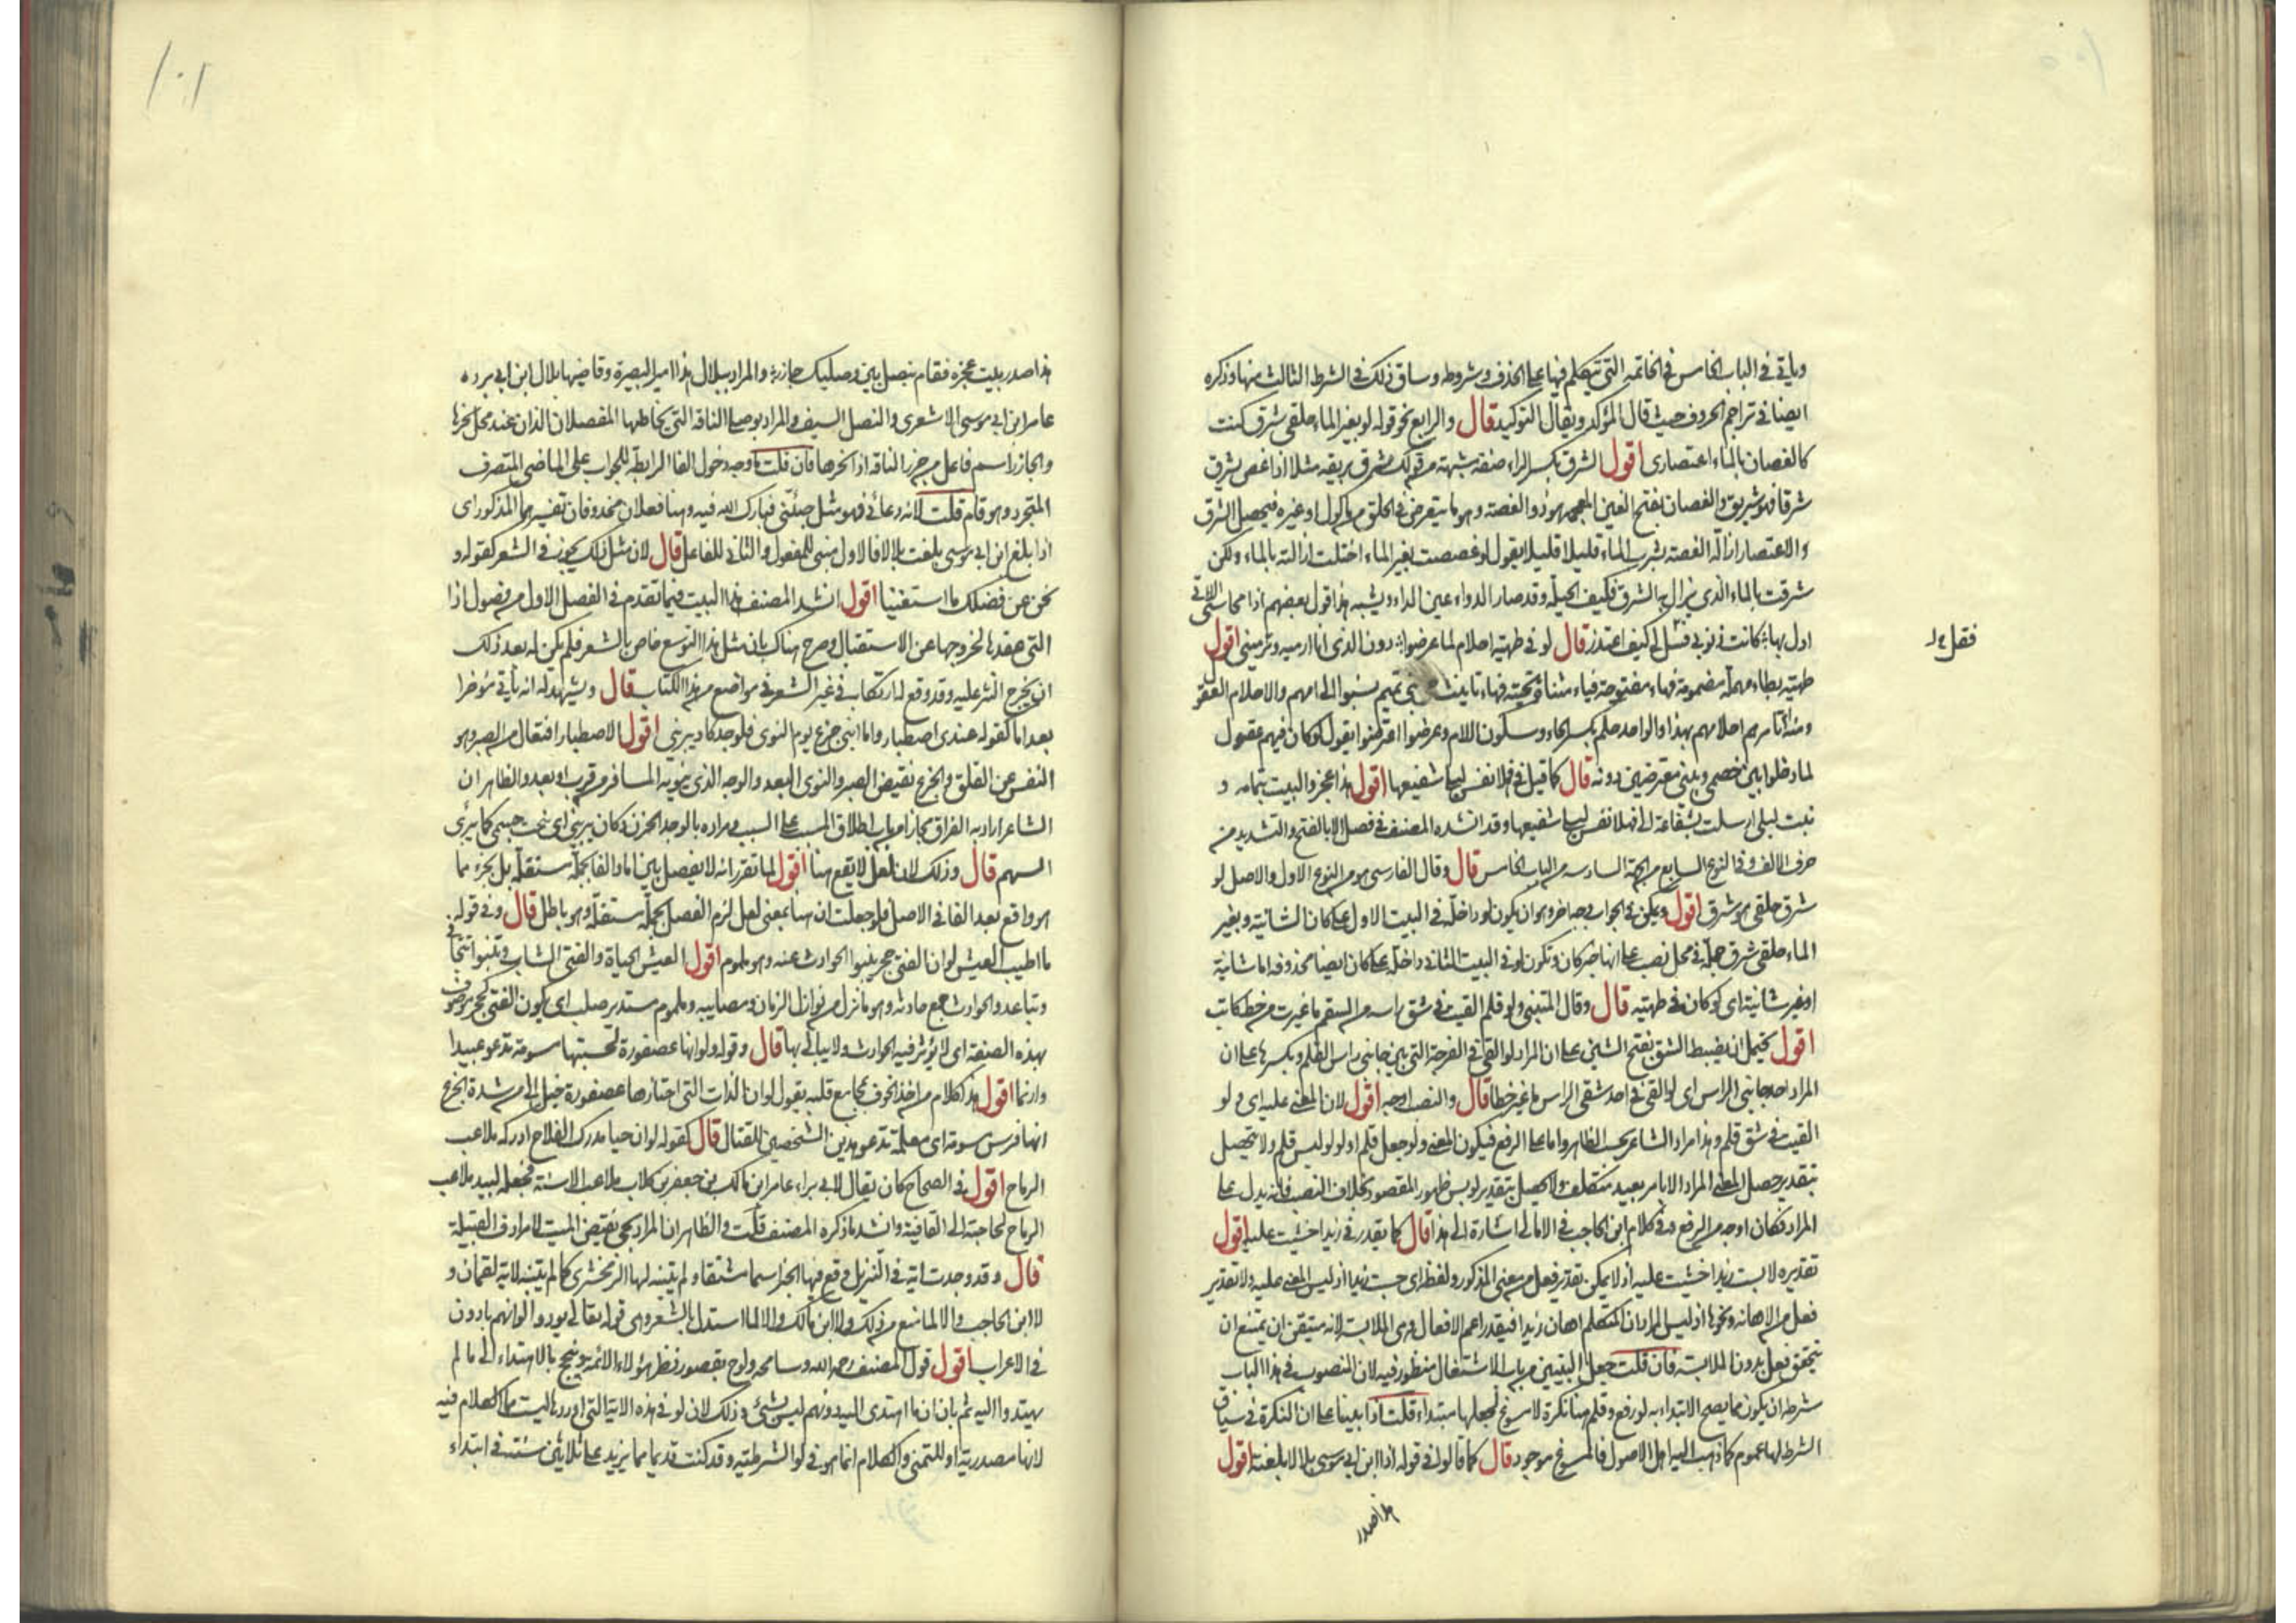 وياتي في الباب الخامس في الخاتمة التي تتكلم فيها على الحذف وشروطه وساق ذلك في الشرط الثالث منها وذكره
ايضا في تراجم الحروف حيث قال المؤكد ويقال التوكيد قال والرابع نحو قوله لو بغير الماء حلقي شرق كنت
كالغصان بالماء اعتصاري اقول الشرق بكسر الراء صفة مشبهة من قولك شرق بريقه مثلا اذا غص يشرق
شرقا فهو شرق والغصان بفتح الغين المعجمة هو ذو الغصة وهو ما يتعرض في الحلق من ماكول او غيره فيحصل الشرق
والاعتصار ازالة الغصة بشرب الماء قليلا قليلا يقول لو غصصت بغير الماء اختلت ازالته بالماء ولكن
شرقت بالماء الذي يزال به الشرق فكيف الحيلة وقد صار الدواء عين الداء ويشبه هذا قول بعضهم اذا محاسني اللاتي
ادل بها كانت ذنوبي فقل لي كيف اعتذر قال لو في طهية احلام لما عرضوا دون الذي انا ارميه ويرميني اقول
فقل لي
طهية بطاء مهملة مضمومة فهاء مفتوحة فياء مثناة تحتية فهاء تانيث حي من تميم نسبوا الى امهم والاحلام العقول
ومنه ام تامرهم احلامهم بهذا والواحد حلم بكسر الحاء وسكون اللام وعرضوا اعترضوا يقول لو كان فيهم عقول
لما دخلوا بين خصمي وبيني معترضين دونه قال كما قيل في فهلا نفس ليلى شفيعها اقول هذا عجز والبيت بتمامه و
نبئت ليلى ارسلت بشفاعة الي فهلا نفس ليلى شفيعها وقد انشده المصنف في فصل الا بالفتح والتشديد من
حرف الالف وفي النوع السابع من الجهة السادسة من الباب الخامس قال وقال الفارسي هو من النوع الاول والاصل لو
شرق حلقي هو شرق اقول ويمكن في الجواب وجه اخر وهو ان يكون لو داخلة في البيت الاول على كان الشانية وبغير
الماء حلقي شرق جملة في محل نصب على انها خبر كان وتكون لو في البيت الثاني داخلة على كان ايضا محذوفة اما شانية
او غير شانية اي لو كان في طهية قال وقال المتنبي ولو قلم القيت في شق راسه من السقم ما غيرت من خط كاتب
اقول يحتمل ان يضبط الشق بفتح الشين على ان المراد لو القي في الفرجة التي بين جانبي راس القلم وبكسرها على ان
المراد احد جانبي الراس اي لو القي في احد شقي الراس ما غير خطا قال والنصب اوجه اقول لان المعنى عليه اي ولو
القيت في شق قلم وهذا مراد الشاعر بحسب الظاهر واما على الرفع فيكون المعنى ولو جعل قلم او لو لوبس قلم ولا يتحصل
بتقدير حصل المعنى المراد الا بامر بعيد متكلف ولا يحصل بتقدير لوبس ظهور المقصود بخلاف النصب فانه يدل على
المراد فكان اوجه من الرفع وفي كلام ابن الحاجب في الامالي اشارة الى هذا قال كما يقدر في زيدا حبست عليه اقول
تقديره لابست زيدا حبست عليه اذ لا يمكن تقدير فعل من معنى المذكور ولفظه اي حبست زيدا اذ ليس المعنى عليه ولا تقدير
فعل من الاهانة ونحوها اذ ليس المراد ان المتكلم اهان زيدا فيقدر اعم الافعال وهي الملابسة لانه متيقن ان يمتنع ان
يتحقق فعل بدون الملابسة فان قلت جعل البيتين من باب الاشتغال منظور فيه لان المنصوب في هذا الباب
شرطه ان يكون مما يصح الابتداء به لو رفع وقلم هنا نكرة لا مسوغ لجعلها مبتداء قلت اذا بنينا على ان النكرة في سياق
الشرط لها عموم كما ذهب اليه اهل الاصول فالمسوغ موجود قال كما قالوا في قوله اذا ابن ابي موسى بلالا بلغته اقول
هذا صدر
١٠١
هذا صدر بيت عجزه فقام بنصل بين وصليك جازر والمراد ببلال هذا امير البصرة وقاضيها بلال ابن ابي بردة
عامر ابن ابي موسى الاشعري والنصل السيف والمراد بوصلي الناقة التي يخاطبها المفصلان اللذان عند محل نحرها
والجازر اسم فاعل من جزر الناقة اذا نحرها فان قلت ما وجه دخول الفا الرابطة للجواب على الماضي المتصرف
المتجرد وهو قام قلت لانه دعائي فهو مثل جئتني فبارك الله فيه وهنا فعلان محذوفان تفسيرهما المذكور اي
اذا بلغ ابن ابي موسى بلغت بلالا فالاول مبني للمفعول والثاني للفاعل قال لان مثل ذلك يجوز في الشعر كقوله و
نحن عن فضلك ما استغنينا اقول انشد المصنف هذا البيت فيما تقدم في الفصل الاول من فصول اذا
التي عقدها لخروجها عن الاستقبال وصرح هناك بان مثل هذا التوسع خاص بالشعر فلم يكن له بعد ذلك
ان يخرج النثر عليه وقد وقع له ارتكاب في غير الشعر في مواضع من هذا الكتاب قال ويشهد له انه ياتي مؤخرا
بعد اما كقوله عندي اصطبار واما انني جزع يوم النوى فلوجد كاد يبريني اقول الاصطبار افتعال من الصبر وهو
النفس عن القلق والجزع نقيض الصبر والنوى البعد والوجه الذي ينويه المسافر من قرب او بعد والظاهر ان
الشاعر اراد به الفراق مجازا من باب اطلاق المسبب على السبب ومراده بالوجد الحزن وكان يبريني اي ينحت جسمي كما يبرى
السهم قال وذلك لان لعل لا يقع هنا اقول لما تقرر انه لا يفصل بين اما والفا بجملة مستقلة بل بجزء مما
هو واقع بعد الفا في الاصل فلو جعلت ان هنا بمعنى لعل لزم الفصل بجملة مستقلة وهو باطل قال وفي قوله
ما اطيب العيش لو ان الفتى حجر ينبوا الحوادث عنه وهو ملموم اقول العيش الحياة والفتى الشاب وتنبوا تتجافى
وتتباعد والحوادث جمع حادثة وهو ما نزل من نوازل الزمان ومصايبه وملموم مستدير صلب اي يكون الفتى كحجر موصوف
بهذه الصفة اي لا يؤثر فيه الحوادث ولا يبالي بها قال وقوله ولو انها عصفورة لحسبتها مسومة تدعو عبيدا
وازنما اقول هذا كلام من اخذ الخوف بمجامع قلبه يقول لو ان الذات التي اجتازها عصفورة خيل الي من شدة الجزع
انها فرس مسومة اي معلمة تدعو هذين الشخصين للقتال قال كقوله لو ان حيا مدرك الفلاح ادركه ملاعب
الرماح اقول في الصحاح كان يقال لابي براء عامر ابن مالك بن جعفر بن كلاب ملاعب الاسنة فجعله لبيد ملاعب
الرماح لحاجته الى القافية وانشد ما ذكره المصنف قلت والظاهر ان المراد بحي نقيض الميت لا مرادف القبيلة
قال وقد وجدت اية في التنزيل وقع فيها الخبر اسما مشتقا ولم يتنبه لها الزمخشري كما لم يتنبه لاية لقمان و
لا ابن الحاجب والا لما منع من ذلك ولا ابن مالك والا لما استدل بالشعر وهي قوله تعالى يودوا لو انهم بادون
في الاعراب اقول قول المصنف رحمه الله وسامحه ولوح بقصور نظر هؤلاء الائمة وبنجح بالاهتداء الى ما لم
يهتدوا اليه ثم بان ان ما اهتدى اليه دونهم ليس بشئ وذلك لان لو في هذه الاية التي اوردها ليست مما الكلام فيه
لانها مصدرية او للتمني والكلام انما هو في لو الشرطية وقد كنت قديما مما يزيد على ثلاثين سنة في ابتداء